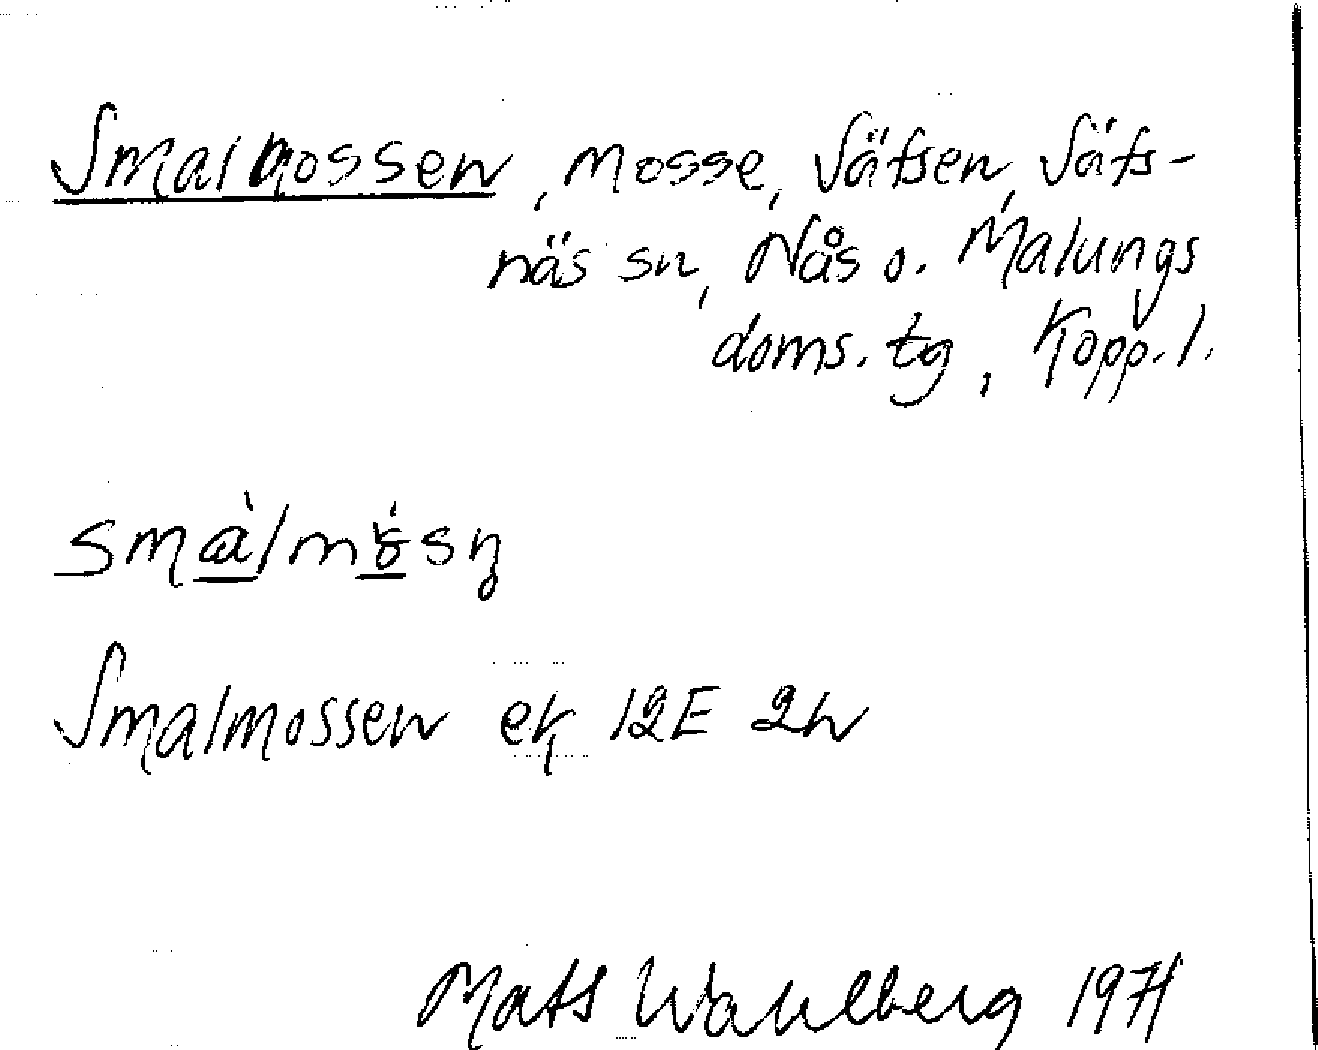 Smalmossen, mosse, Säfsen, Säfs-
näs sn, Nås o. Malungs
doms. tg, Kopp. l.
Smalmossen ek 12E 2h
Mats Wahlberg 1971